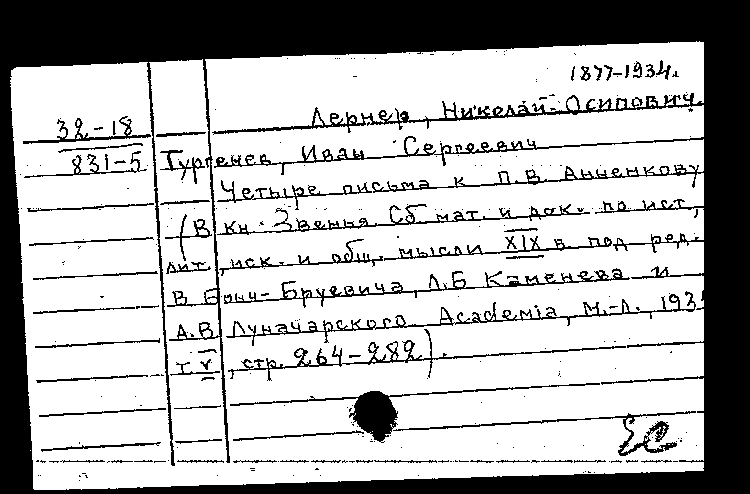 1877-1934.
Лернер, Николай Осипович.
32-18
831-5 Тургенев, Иван Сергеевич
Четыре письма к П.В. Анненкову
(В кн. Звенья Сб мат. и док. по ист.,
лит., иск. и общ. мысли XIX в под ред.
В Бонч-Бруевича, Л.Б Каменева и
А.В Луначарского Academia, М.-Л., 193
т. V, стр. 264-282).